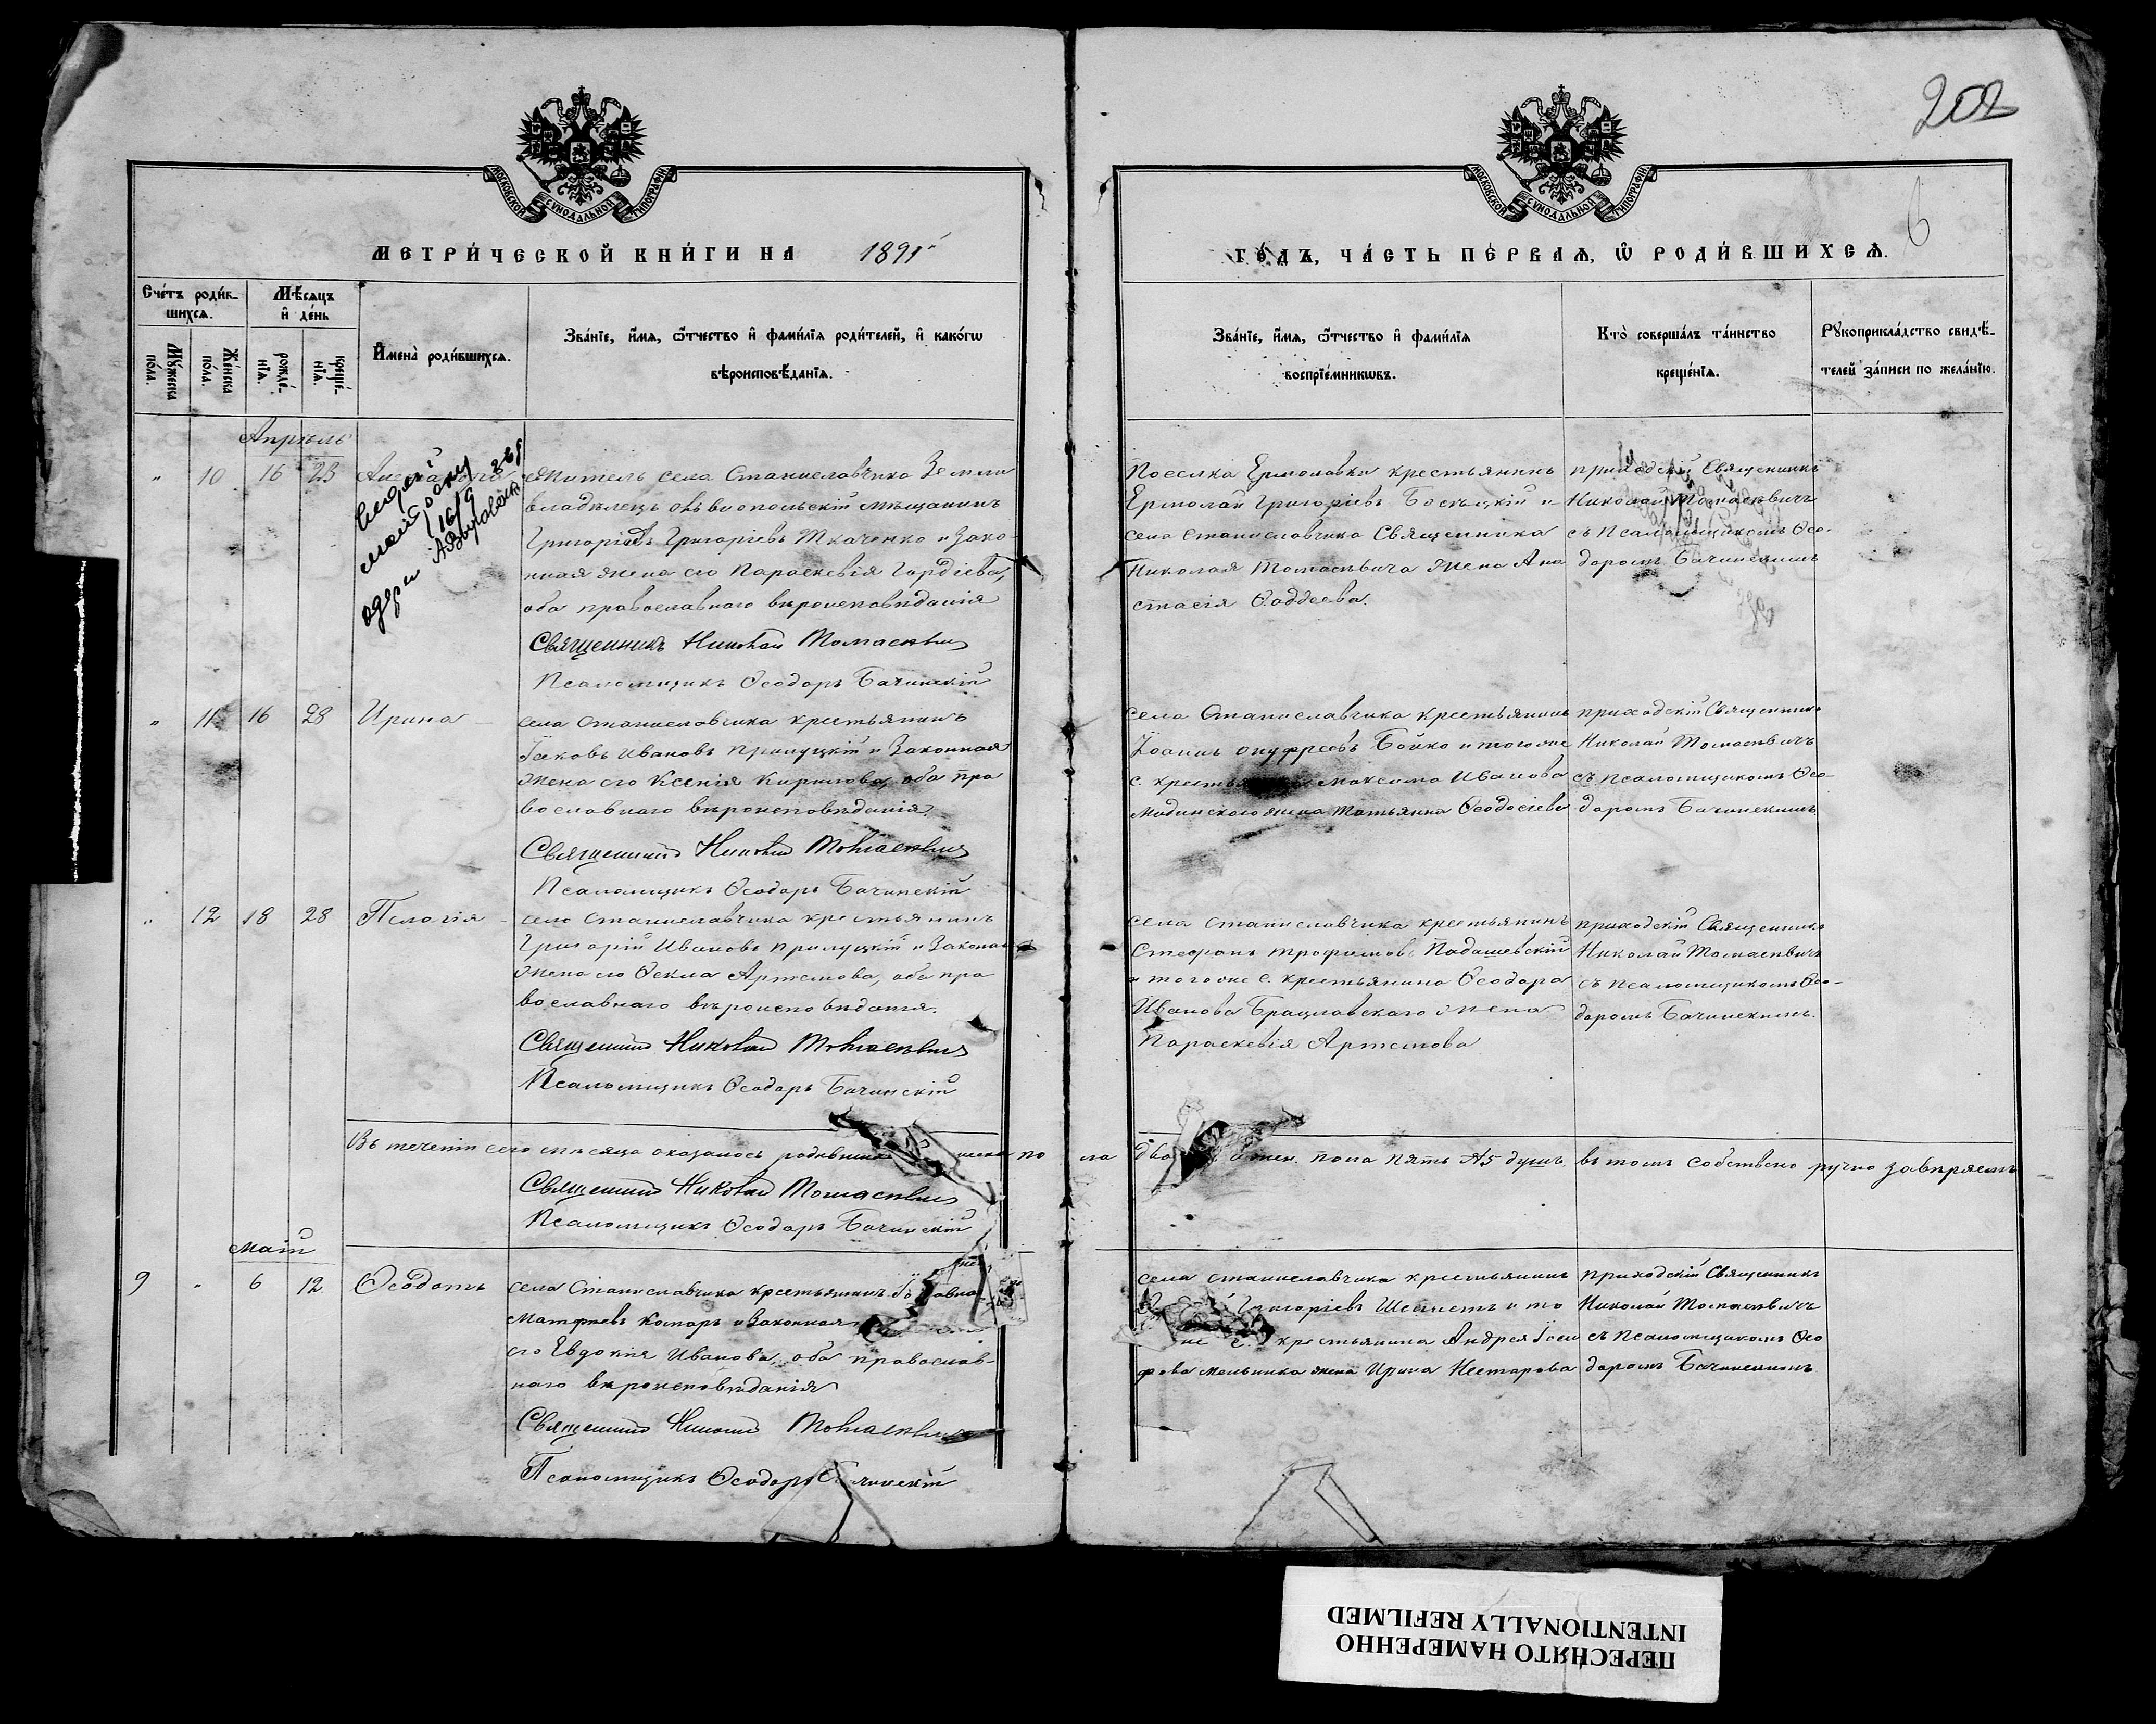 202
6
МОСКОВСКОЙ СУНОДАЛЬНОЙ ТИПОГРАФІИ
МОСКОВСКОЙ СУНОДАЛЬНОЙ ТИПОГРАФІИ
МЕТРИ́ЧЕСКОЙ КНИ́ГИ НА 1891
ГО́ДЪ, ЧА́СТЬ ПЕ́РВАЯ, Ѡ РОДИ́ВШИХСЯ.
Сче́тъ роди́в-
шихся.
Мѣ́сяцъ
и҆ де́нь
Мꙋ́жеска
по́ла.
Же́нска
по́ла.
рожде́-
нїѧ.
креще́-
нїѧ.
И҆мена̀ роди́вшихся.
Зва́нїе, и҆́мѧ, ѻ҆́тчество и҆ фами́лїѧ роди́телей, и҆ како́гѡ
вѣроисповѣ́данїѧ.
Зва́нїе, и҆́мѧ, ѻ҆́тчество и҆ фами́лїѧ
воспрїе́мникѡвъ.
Кто̀ соверша́лъ та́инство
креще́нїѧ.
Рꙋкоприкла́дство свидѣ́-
телей за́писи по жела́нїю.
Апрѣль
" 10 16 23
Житель села Станиславчика Земли
владѣлецъ Ольвиопольскій мѣщанинъ
Григорій Григорьевъ Ткаченко и Зако-
нная жена его Параскевія Гордіева,
оба православнаго вѣроисповѣданія
Священникъ Николай Томасевичъ
Псаломщикъ Ѳеодоръ Бачинскій
Поселка Ермоловки крестьянинъ
Ермолай Григоріевъ и
села Станиславчика Священника
Николая Томасевича жена Ана
стасія Фаддеева.
приходскій Священникъ
Николай Томасевичъ
съ Псаломщикомъ Ѳео-
доромъ Бачинскимъ
" 11 16 28 Ирина
села Станиславчика крестьянинъ
Іаковъ Ивановъ Прилуцкій и Законная
жена его Ксенія Кирилова, оба пра
вославнаго вѣроисповѣданія.
Священникъ Николай Томасевичъ
Псаломщикъ Ѳеодоръ Бачинскій
села Станиславчика крестьянинъ
Іоаннъ Онуфреевъ Бойко и того же
с. Максима Иванова
жена Татьяна Ѳеодосіева
приходскій Священникъ
Николай Томасевичъ
съ псаломщикомъ Ѳео-
доромъ Бачинскимъ.
" 12 18 28 Пелагія
села Станиславчика крестьянинъ
Григорій Ивановъ Прилуцкій и Законная
жена его Ѳекла Артемова, оба пра
вославнаго вѣроисповѣданія.
Священникъ Николай Томасевичъ
Псаломщикъ Ѳеодоръ Бачинскій
села Станиславчика крестьянинъ
Стефанъ Трофимовъ Падашевскій
и того же с. крестьянина Ѳеодора
Иванова Брацлавскаго жена
Параскевія Артемова
приходскій Священникъ
Николай Томасевичъ
съ псаломщикомъ Ѳео-
доромъ Бачинскимъ.
Въ теченіи сего мѣсяца оказалось
два жен. пола пять 5 душъ, въ томъ собственоручно завѣряемъ
Священникъ Николай Томасевичъ
Псаломщикъ Ѳеодоръ Бачинскій
Май
9 " 6 12 Ѳеодотъ
села Станиславчика крестьянинъ
Матфеевъ Комаръ и Законная
его Евдокія Иванова, оба православ-
наго вѣроисповѣданія
Священникъ Николай Томасевичъ
Псаломщикъ Ѳеодоръ Бачинскій
села Станиславчика крестьянинъ
Григоріевъ и то
же с. крестьянина Андрея Іоси
фова Мельника жена Ирина Нестерова
приходскій Священникъ
Николай Томасевичъ
съ псаломщикомъ Ѳео
доромъ Бачинскимъ
ПЕРЕСНЯТО НАМЕРЕННО
INTENTIONALLY REFILMED